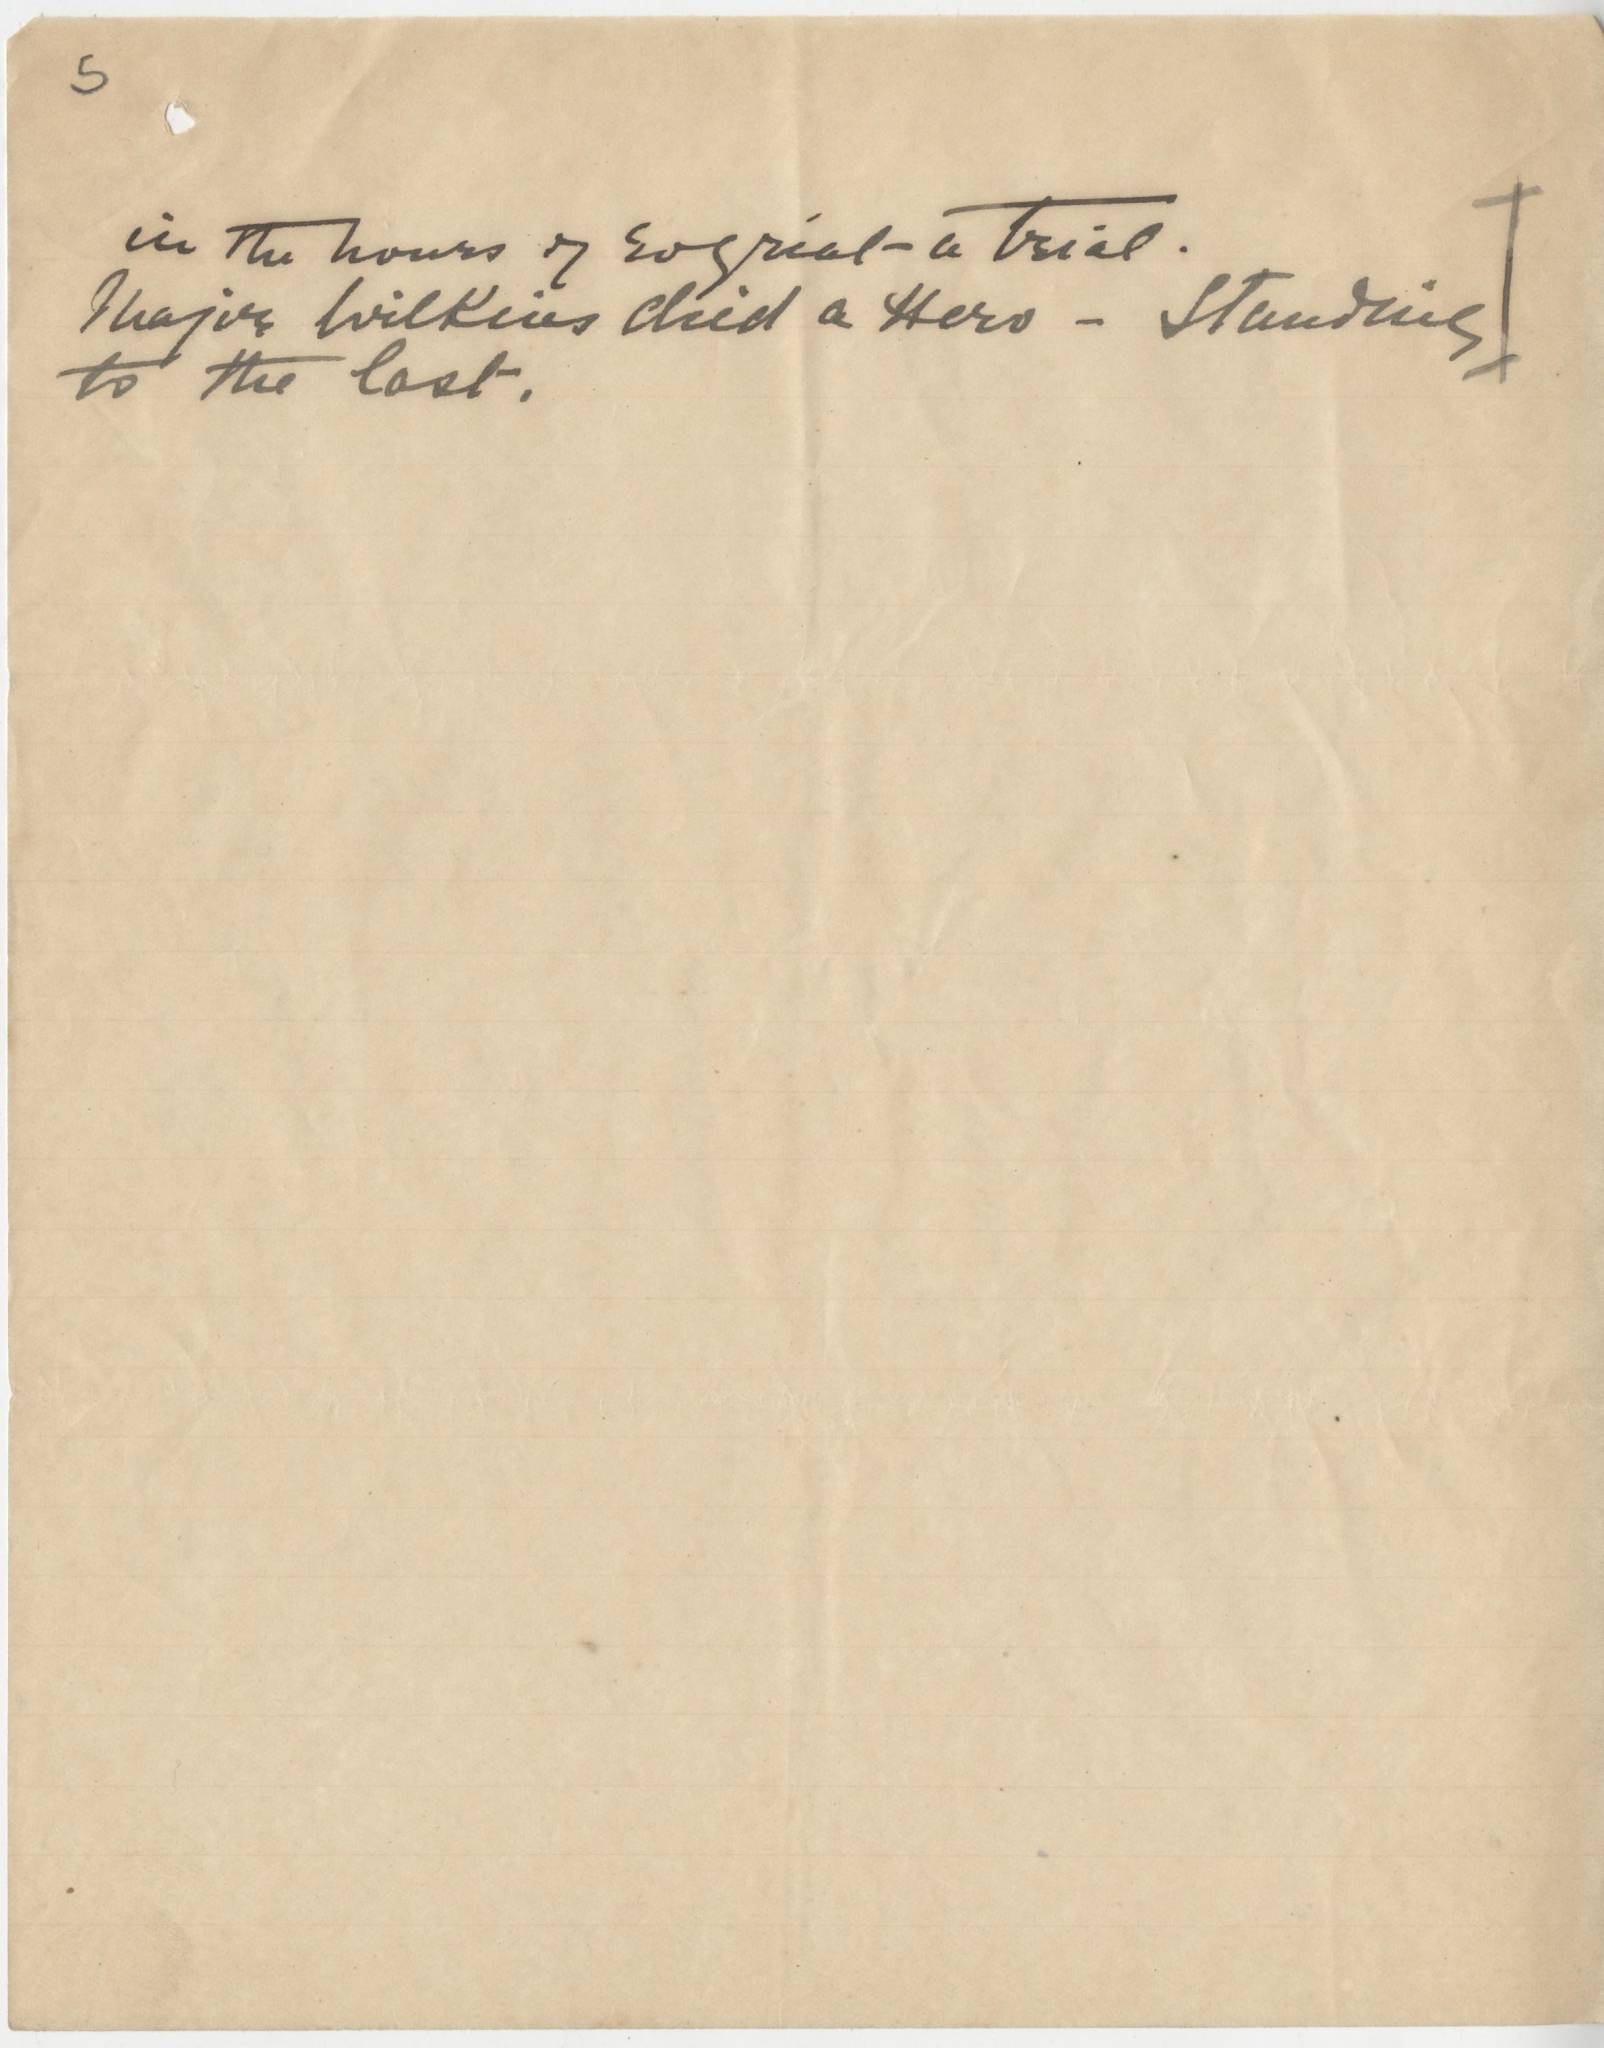 5
in the hours of so great a trial.
Major Wilkins died a Hero - Standing
to the last.